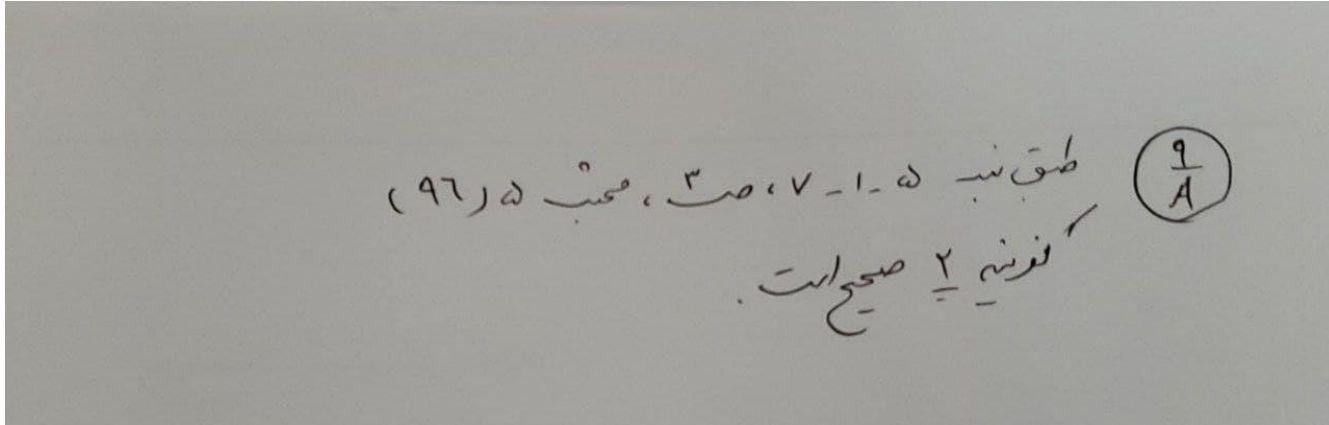 ۹/A طبق بند ۵-۱-۷، ص۳، مبحث ۵ (۹۶)
گزینه ۲ صحیح است.